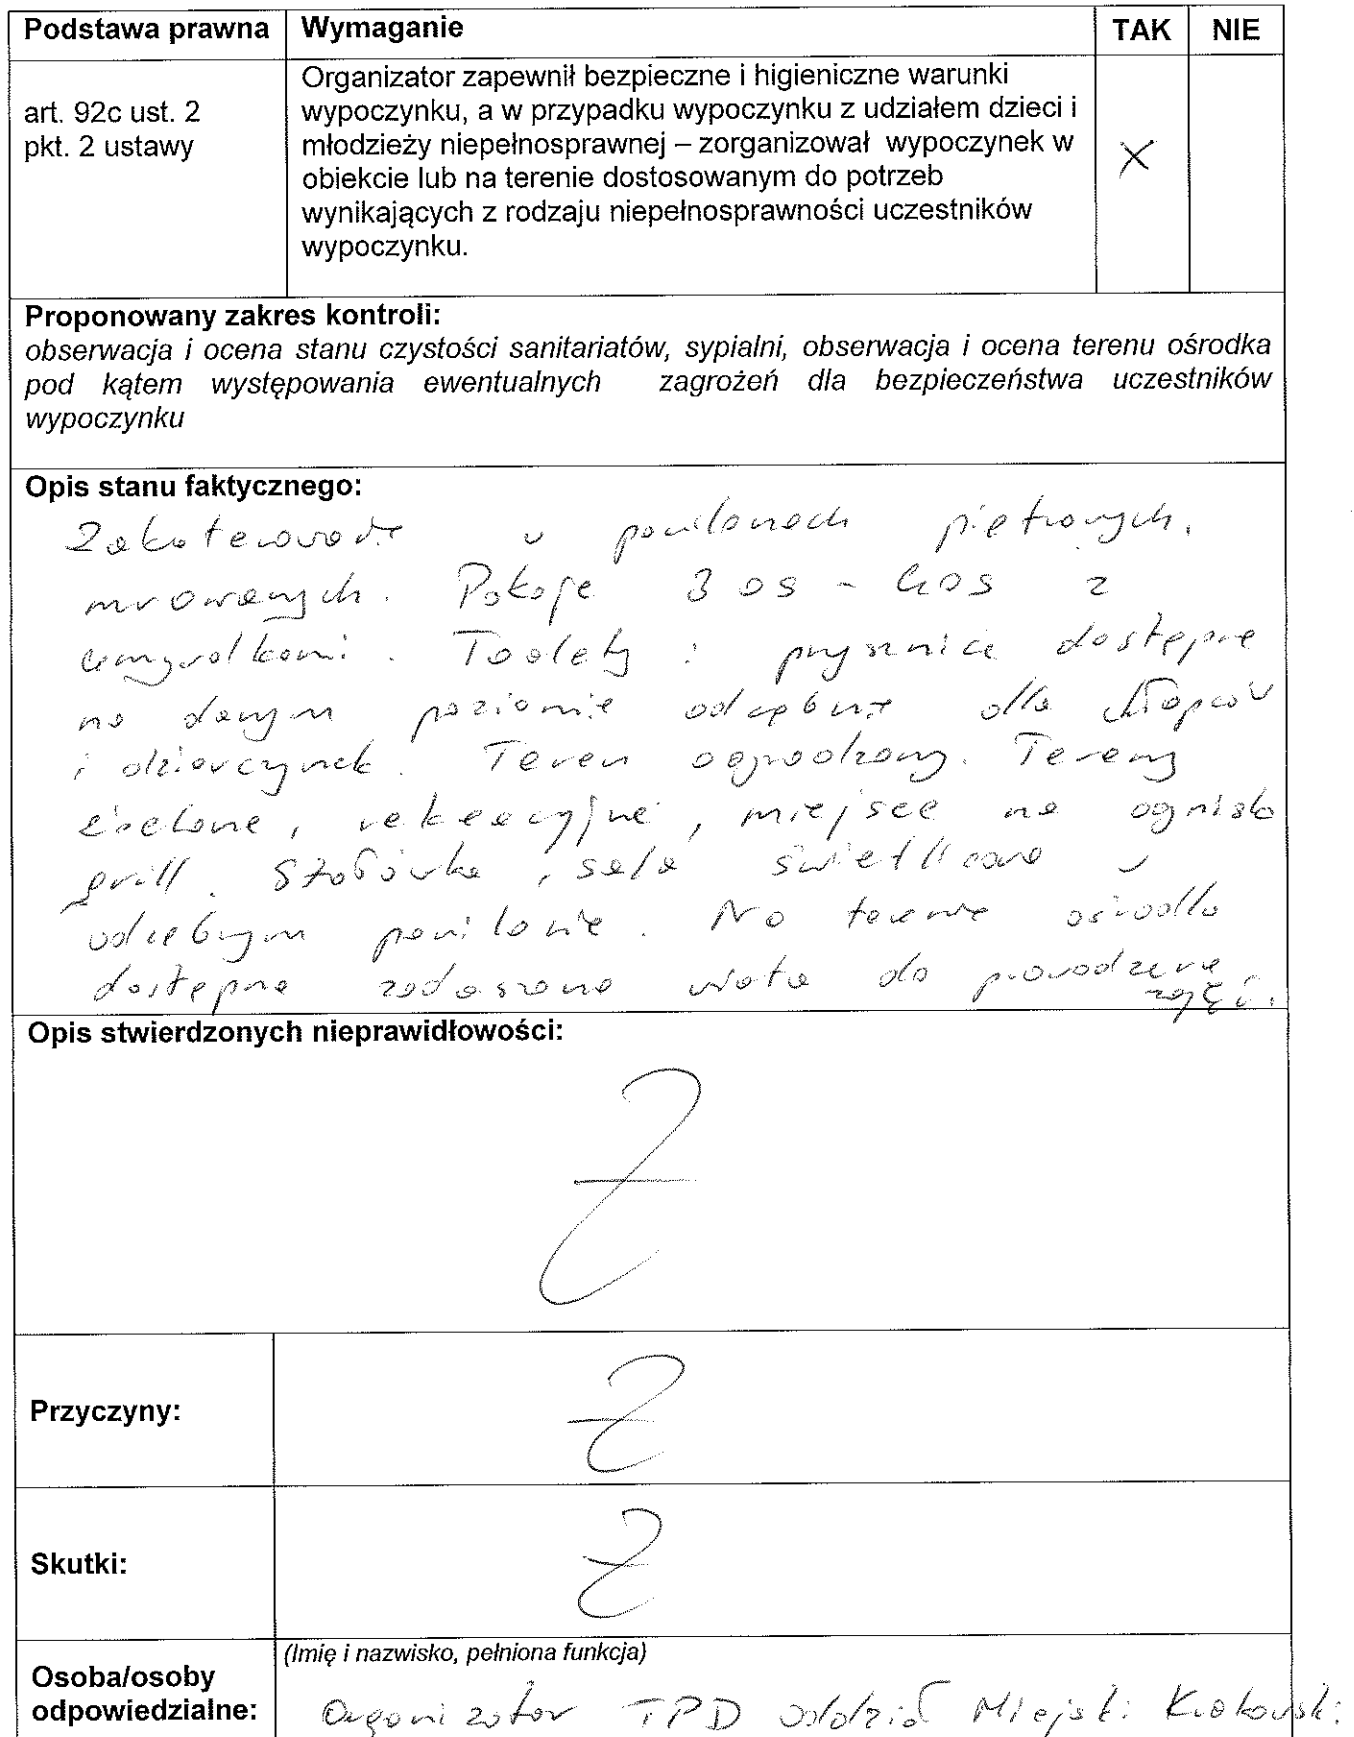 Podstawa prawna Wymaganie TAK NIE
art. 92c ust. 2
pkt. 2 ustawy
Organizator zapewnił bezpieczne i higieniczne warunki
wypoczynku, a w przypadku wypoczynku z udziałem dzieci i
młodzieży niepełnosprawnej – zorganizował wypoczynek w
obiekcie lub na terenie dostosowanym do potrzeb
wynikających z rodzaju niepełnosprawności uczestników
wypoczynku.
X
Proponowany zakres kontroli:
obserwacja i ocena stanu czystości sanitariatów, sypialni, obserwacja i ocena terenu ośrodka
pod kątem występowania ewentualnych zagrożeń dla bezpieczeństwa uczestników
wypoczynku
Opis stanu faktycznego:
Zakaterowanie w pawilonach piętrowych,
murowanych. Pokoje 3 os - 4 os z
umywalkami. Toalety i prysznice dostępne
na danym poziomie odrębne dla chłopców
i dziewczynek. Teren ogrodzony. Tereny
zielone, rekreacyjne, miejsce na ognisko
grill. Stołówka, sala świetlicowa w
odrębnym pawilonie. Na terenie ośrodka
dostępna zadaszona wiata do prowadzenia
zajęć.
Opis stwierdzonych nieprawidłowości:
Przyczyny:
Skutki:
Osoba/osoby
odpowiedzialne:
(Imię i nazwisko, pełniona funkcja)
Organizator TPD Oddział Miejski Krakowski